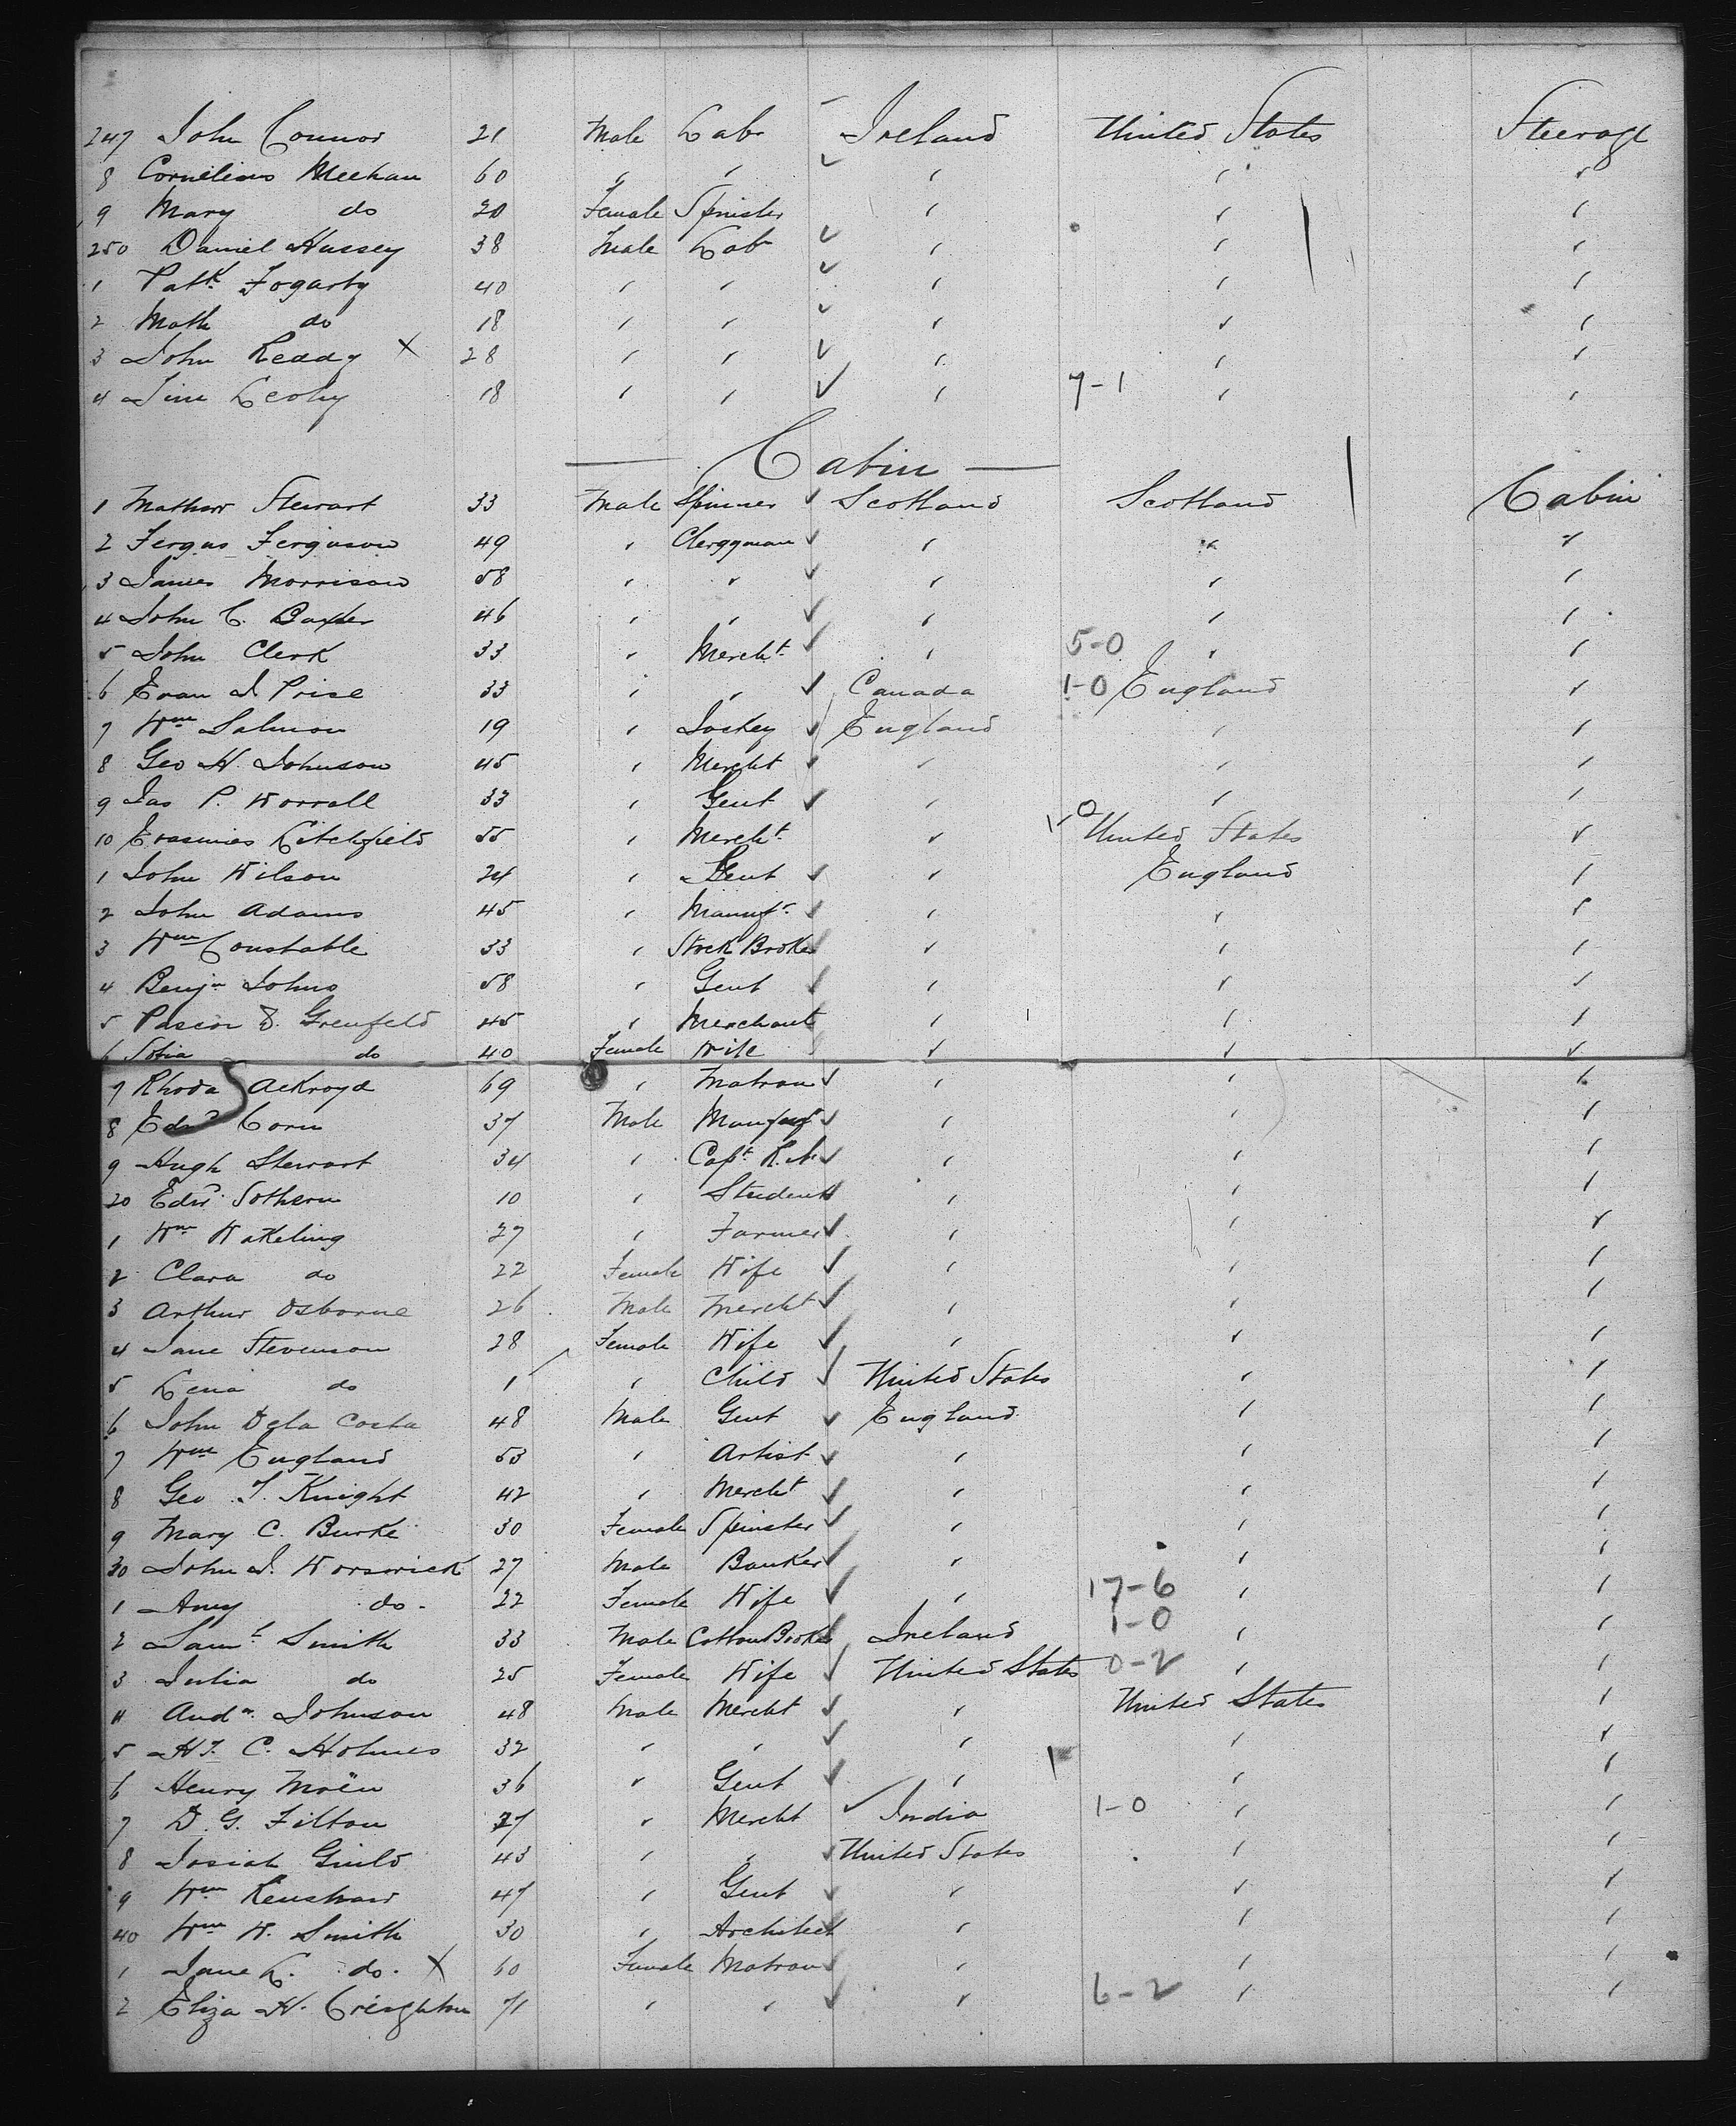 247 John Connor 21 Male Labr Ireland United States Steerage
8 Cornelius Meehan 60 " " " " "
9 Mary do 20 Female Spinster " " "
250 Daniel Hussey 38 Male Labr " " "
1 Patk Fogarty 40 " " " " "
2 Math do 18 " " " " "
3 John Reddy X 28 " " " " "
4 Jim Leahy 18 " " " 7-1 " "
— Cabin —
1 Mathew Stewart 33 Male Spinner Scotland Scotland Cabin
2 Fergus Ferguson 49 " Clergyman " " "
3 James Morrison 58 " " " " "
4 John C. Baxter 46 " " " " "
5 John Clerk 33 " Mercht " 5-0 " "
6 Evan J Price 33 " " Canada 1-0 England "
7 Wm Salmon 19 " Jockey England " "
8 Geo H. Johnson 45 " Mercht " " "
9 Jas P. Worrall 33 " Gent " " "
10 Erasmies Litchfield 55 " Mercht " 1-0 United States "
1 John Wilson 24 " Gent " England "
2 John Adams 45 " Manufr " " "
3 Wm Constable 33 " Stock Broker " " "
4 Benjn Johns 58 " Gent " " "
5 Pascoe D. Grenfeld 45 " Merchant " " "
6 Sofia do 40 Female Wife " " "
7 Rhoda Ackroyd 69 " Matron " " "
8 Edwd Corn 37 Male Manuf " " "
9 Hugh Stewart 34 " Capt R.N. " " "
20 Edwd Sothern 10 " Student " " "
1 Wm Wakeling 27 " Farmer " " "
2 Clara do 22 Female Wife " " "
3 Arthur Osborne 26 Male Mercht " " "
4 Jane Stevenson 28 Female Wife " " "
5 Lena do 1 " Child United States " "
6 John Dela Costa 48 Male Gent England " "
7 Wm England 53 " Artist " " "
8 Geo T. Knight 42 " Mercht " " "
9 Mary C. Burke 30 Female Spinster " " "
30 John J. Worswick 27 Male Banker " " "
1 Amy do 22 Female Wife " 17-6 " "
2 Saml Smith 33 Male Cotton Broker Ireland 1-0 " "
3 Julia do 25 Female Wife United States 0-2 " "
4 Andw Johnson 48 Male Mercht " United States "
5 HT. C. Holmes 32 " " " " "
6 Henry Moën 36 " Gent " " "
7 D. G. Filton 27 " Mercht India 1-0 " "
8 Josiah Guild 43 " " United States " "
9 Wm Renshaw 47 " Gent " " "
40 Wm W. Smith 30 " Architect " " "
1 Jane L. do. X 60 Female Matron " " "
2 Eliza H. Creighton 71 " " " 6-2 " "